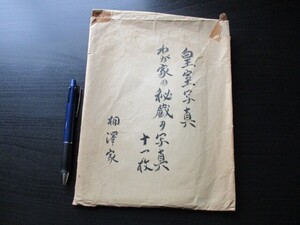 皇室写真
わが家の秘蔵の写真
十一枚
相澤家